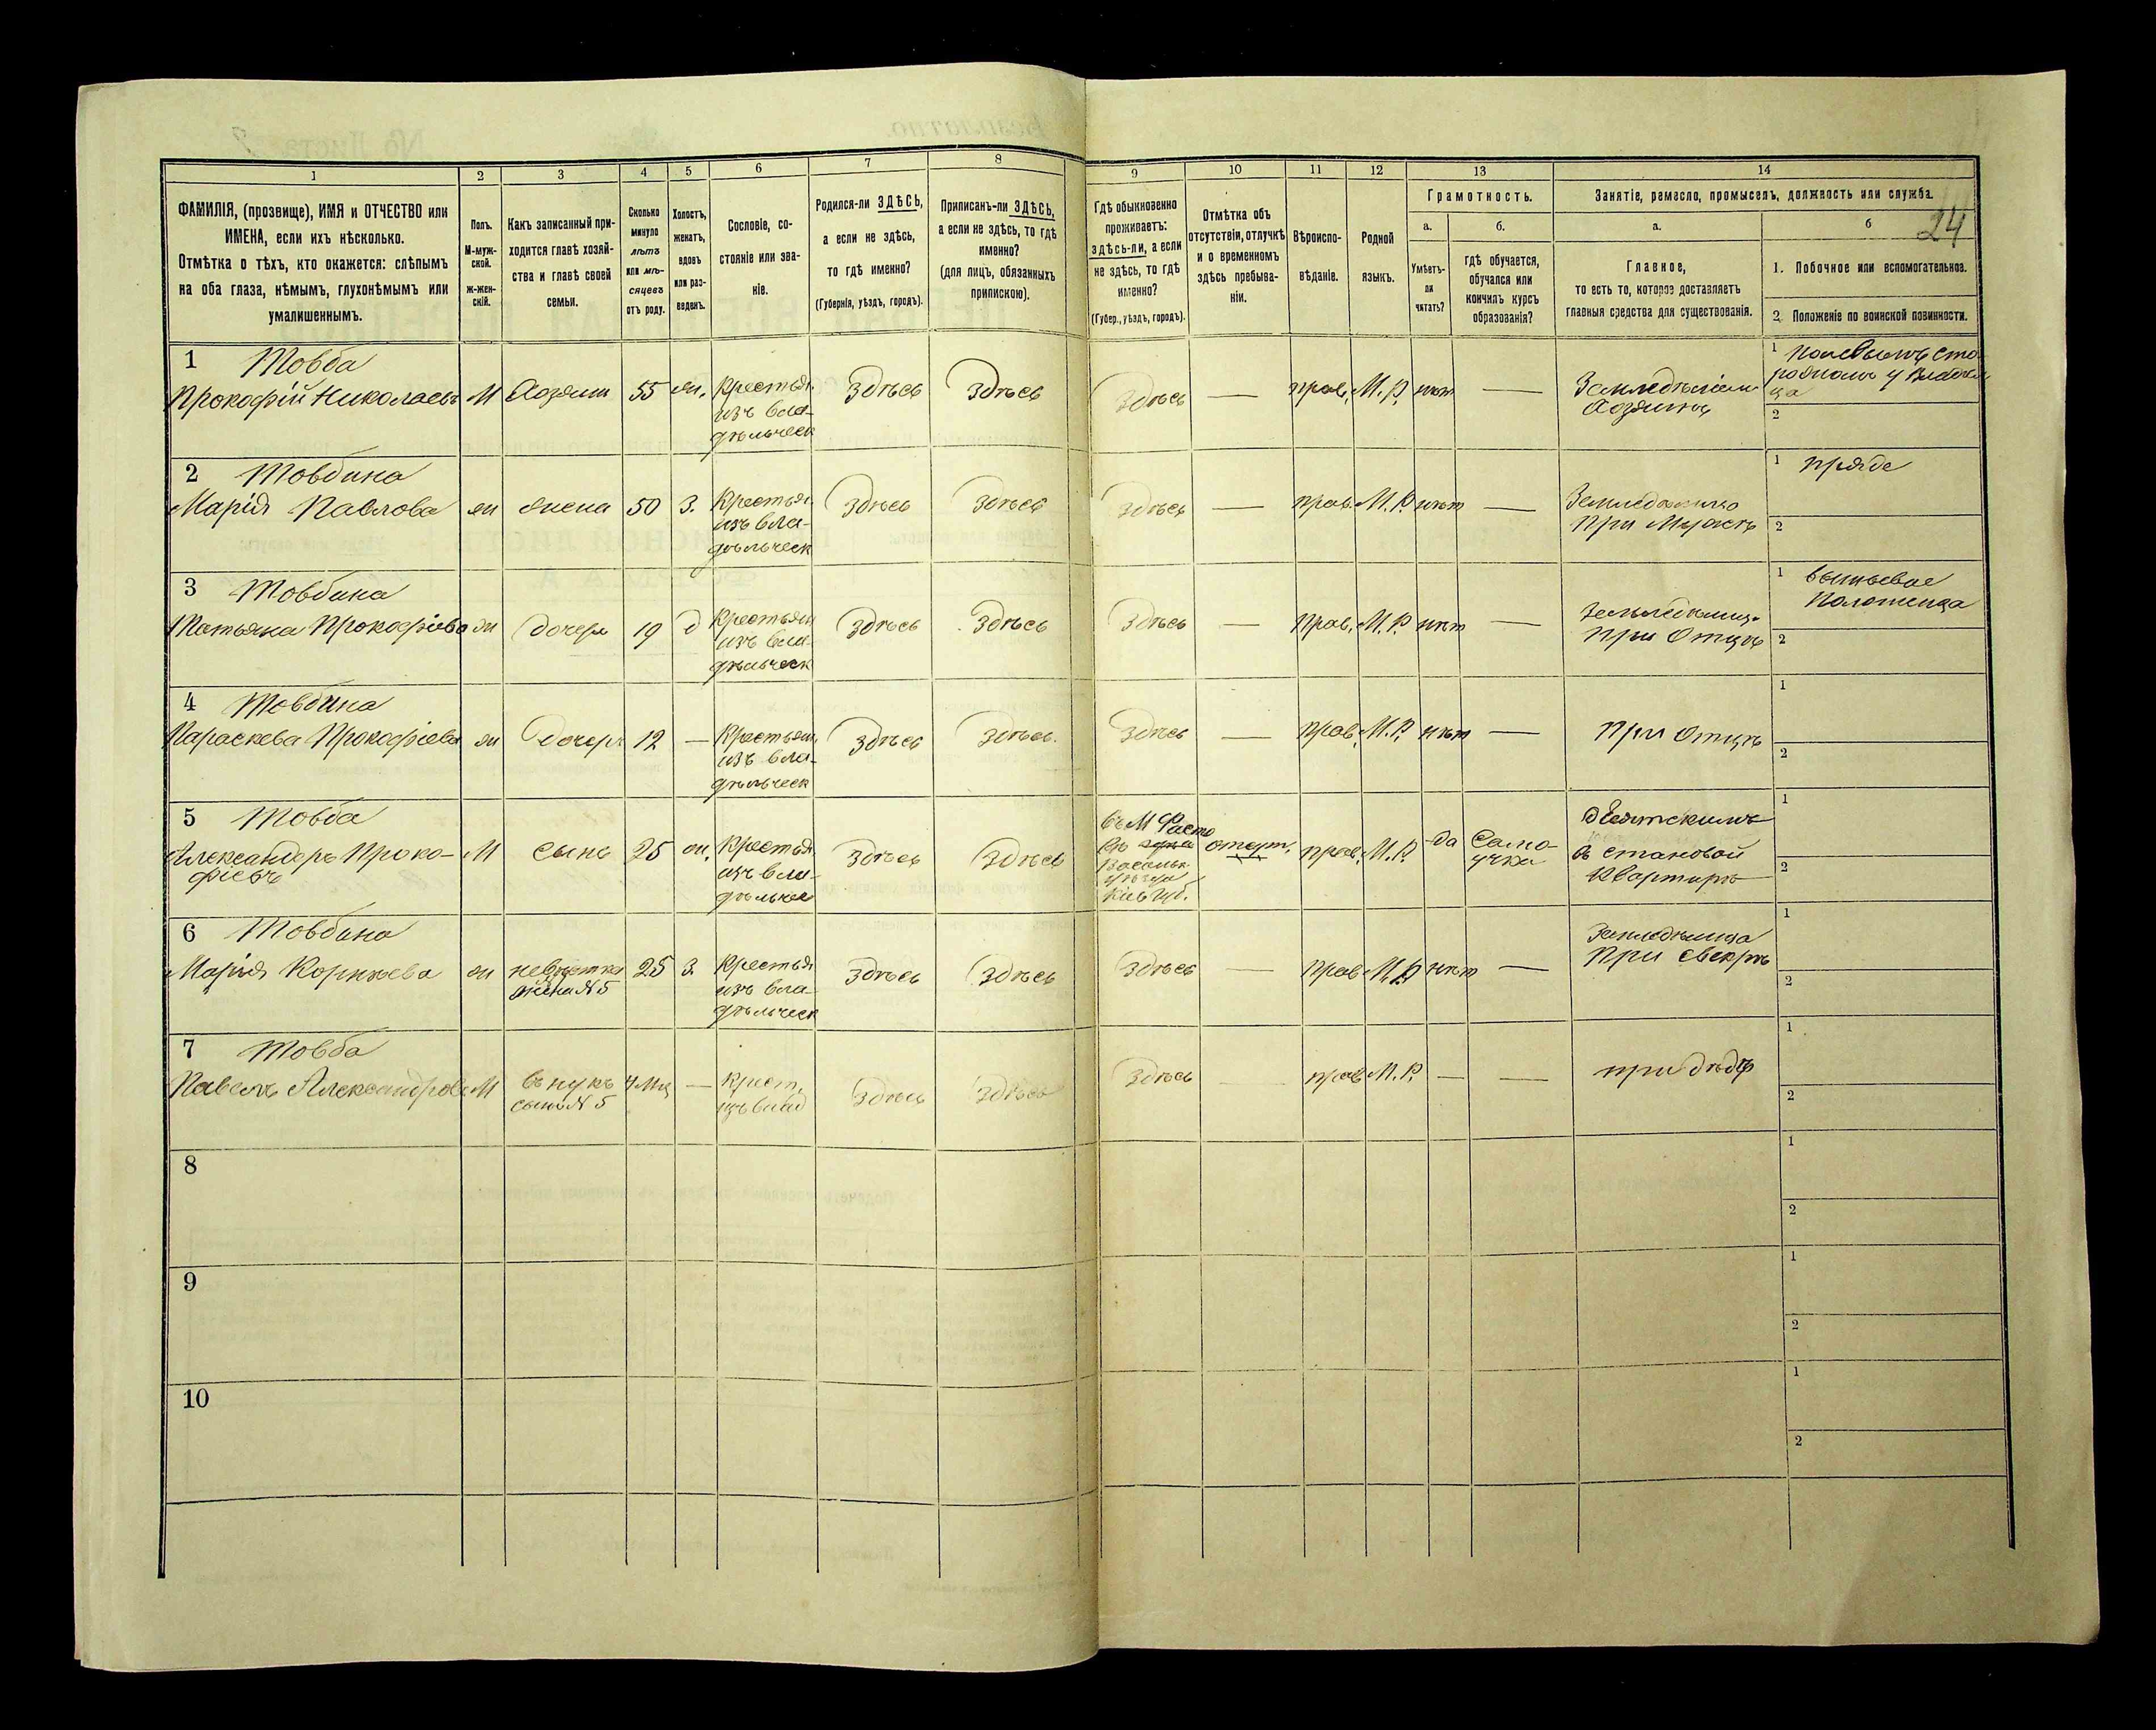 1
2
3
4
5
6
7
8
9
10
11
12
13
14
ФАМИЛІЯ, (прозвище), ИМЯ и ОТЧЕСТВО или
ИМЕНА, если ихъ нѣсколько.
Отмѣтка о тѣхъ, кто окажется: слѣпымъ
на оба глаза, нѣмымъ, глухонѣмымъ или
умалишеннымъ.
Полъ.
М-муж-
ской.
ж-жен-
скій.
Какъ записанный при-
ходится главѣ хозяй-
ства и главѣ своей
семьи.
Сколько
минуло
лѣтъ
или мѣ-
сяцевъ
отъ роду.
Холостъ,
женатъ,
вдовъ
или раз-
веденъ.
Сословіе, со-
стояніе или зва-
ніе.
Родился-ли ЗДѢСЬ,
а если не здѣсь,
то гдѣ именно?
(Губернія, уѣздъ, городъ).
Приписанъ-ли ЗДѢСЬ,
а если не здѣсь, то гдѣ
именно?
(для лицъ, обязанныхъ
припискою).
Гдѣ обыкновенно
проживаетъ:
здѣсь-ли, а если
не здѣсь, то гдѣ
именно?
(Губер., уѣздъ, городъ).
Отмѣтка объ
отсутствіи, отлучкѣ
и о временномъ
здѣсь пребыва-
ніи.
Вѣроиспо-
вѣданіе.
Родной
языкъ.
Грамотность.
а.
Умѣетъ-
ли
читать?
б.
гдѣ обучается,
обучался или
кончилъ курсъ
образованія?
Занятіе, ремесло, промыселъ, должность или служба.
а.
Главное,
то есть то, которое доставляетъ
главныя средства для существованія.
б
24
1. Побочное или вспомогательное.
2. Положеніе по воинской повинности.
1 Товба
Прокофій Николаевъ
М
Хозяин
55
ж.
Крестья
изъ вла-
дѣльческ
Здѣсь
Здѣсь
Здѣсь
—
прав.
М. Р.
нѣт
—
Хозяинъ
1
2
2 Товбина
Марія Павлова
ж
жена
50
З.
Крестья
изъ вла-
дѣльческ
Здѣсь
Здѣсь
Здѣсь
—
прав.
М. Р.
нѣт
—
При Мужѣ
1
2
3 Товбина
Татьяна Прокофіева
ж
дочерь
19
д
Крестьян
изъ вла-
дѣльческ
Здѣсь
Здѣсь
Здѣсь
—
Прав.
М. Р.
нѣт
—
При Отцѣ
1
2
4 Товбина
Параскева Прокофіева
ж
дочерь
12
—
Крестьян
изъ вла-
дѣльческ
Здѣсь
Здѣсь.
Здѣсь
—
прав.
М. Р.
нѣт
—
При Отцѣ
1
2
5 Товба
Александръ Проко-
фіевъ
М
сынъ
25
ж.
Крестья
изъ вла-
Здѣсь
Здѣсь
въ М Фасто
Васильк
уѣзда
Кіев Губ.
прав.
М. Р.
да
Само-
учка
в становой
Квартирѣ
1
2
6 Товбина
Марія Корнѣева
ж
невѣстка
жена N 5
25
З.
Крестья
изъ вла-
дѣльческ
Здѣсь
Здѣсь
Здѣсь
—
прав
М. Р
нѣт
—
При свекрѣ
1
2
7 Товба
Павелъ Александров
М
внукъ
сынъ N 5
4 мц
—
Крест.
Здѣсь
Здѣсь
Здѣсь
—
прав
М. Р.
—
—
при дѣдѣ
1
2
8
1
2
9
1
2
10
1
2